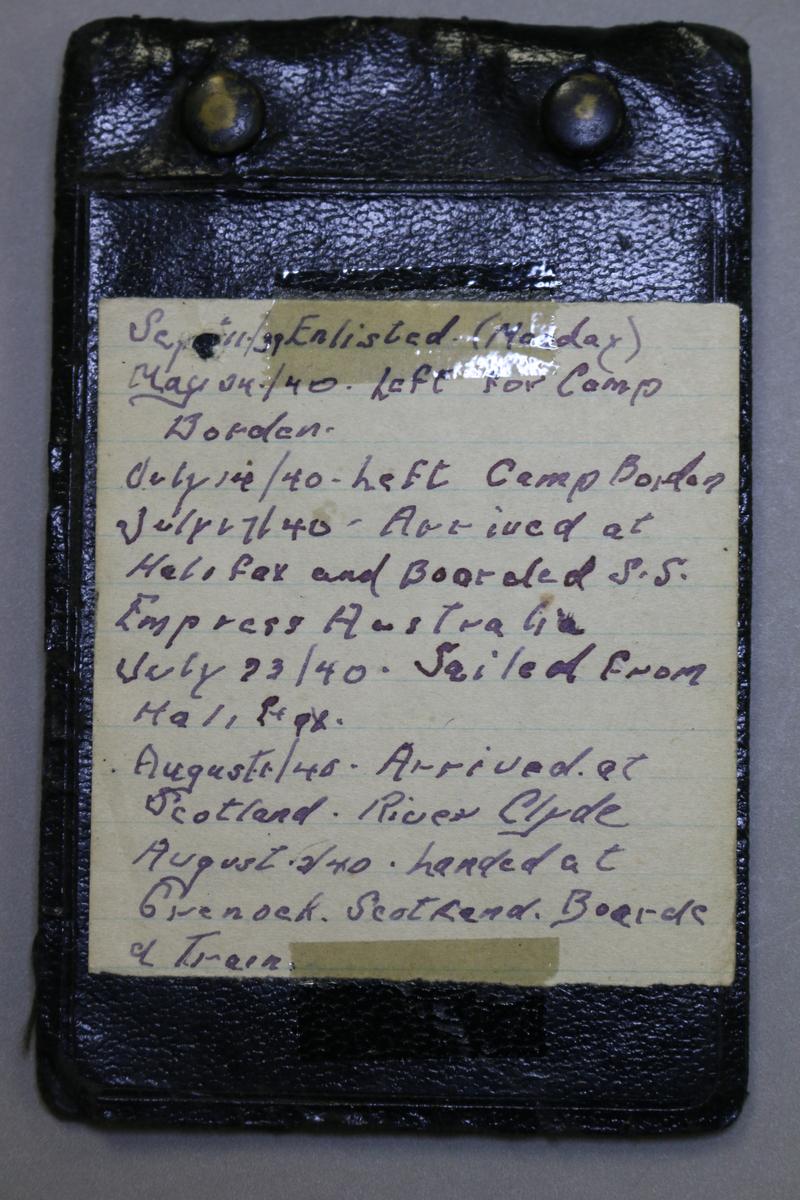 Sep 11/39 Enlisted. (Monday)
May 24/40. Left for Camp
Borden.
July 14/40. Left Camp Borden
July 17/40 - Arrived at
Halifax and Boarded S.S.
Empress Australia
July 23/40. Sailed from
Halifax.
August 1/40. Arrived at
Scotland. River Clyde
August 2/40. Landed at
Grenock. Scotland. Boarde
d Train.